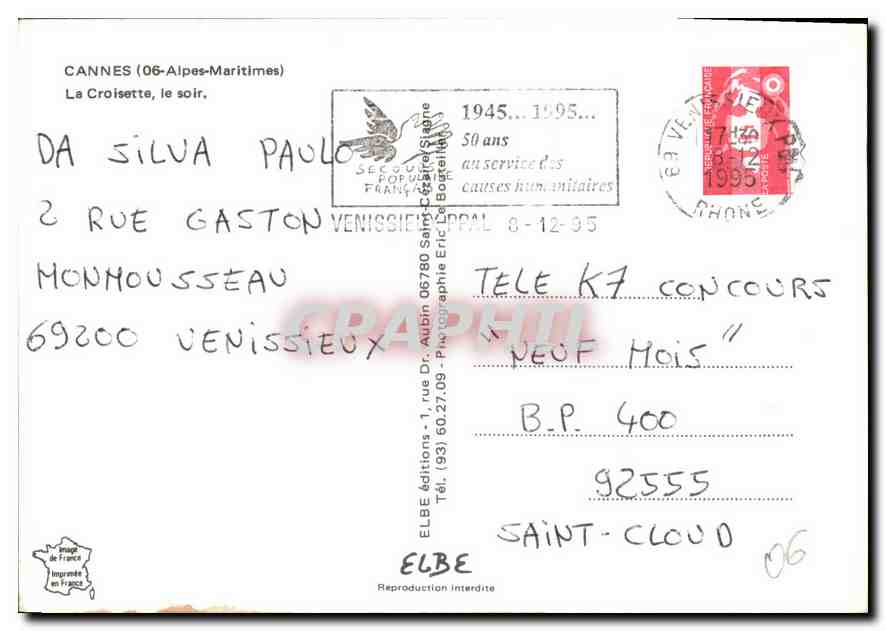 CANNES (06-Alpes-Maritimes)
La Croisette, le soir.
DA SILVA PAULO
2 RUE GASTON
MONMOUSSEAU
69200 VENISSIEUX
SECOURS
POPULAIRE
FRANÇAIS
1945... 1995...
50 ans
au service des
causes humanitaires
VENISSIEUX PPAL 8-12-95
69 VENISSIEUX PPAL
17H
8-12
1995
RHONE
REPUBLIQUE FRANÇAISE
LA POSTE
ELBE éditions - 1, rue Dr. Aubin 06780 Saint-Cézaire/Siagne
Tél. (93) 60.27.09 - Photographie Eric Le Bouteiller
TELE K7 CONCOURS
"NEUF MOIS"
B.P. 400
92555
SAINT-CLOUD
CPAPHIL
Image
de France
Imprimée
en France
ELBE
Reproduction interdite
06